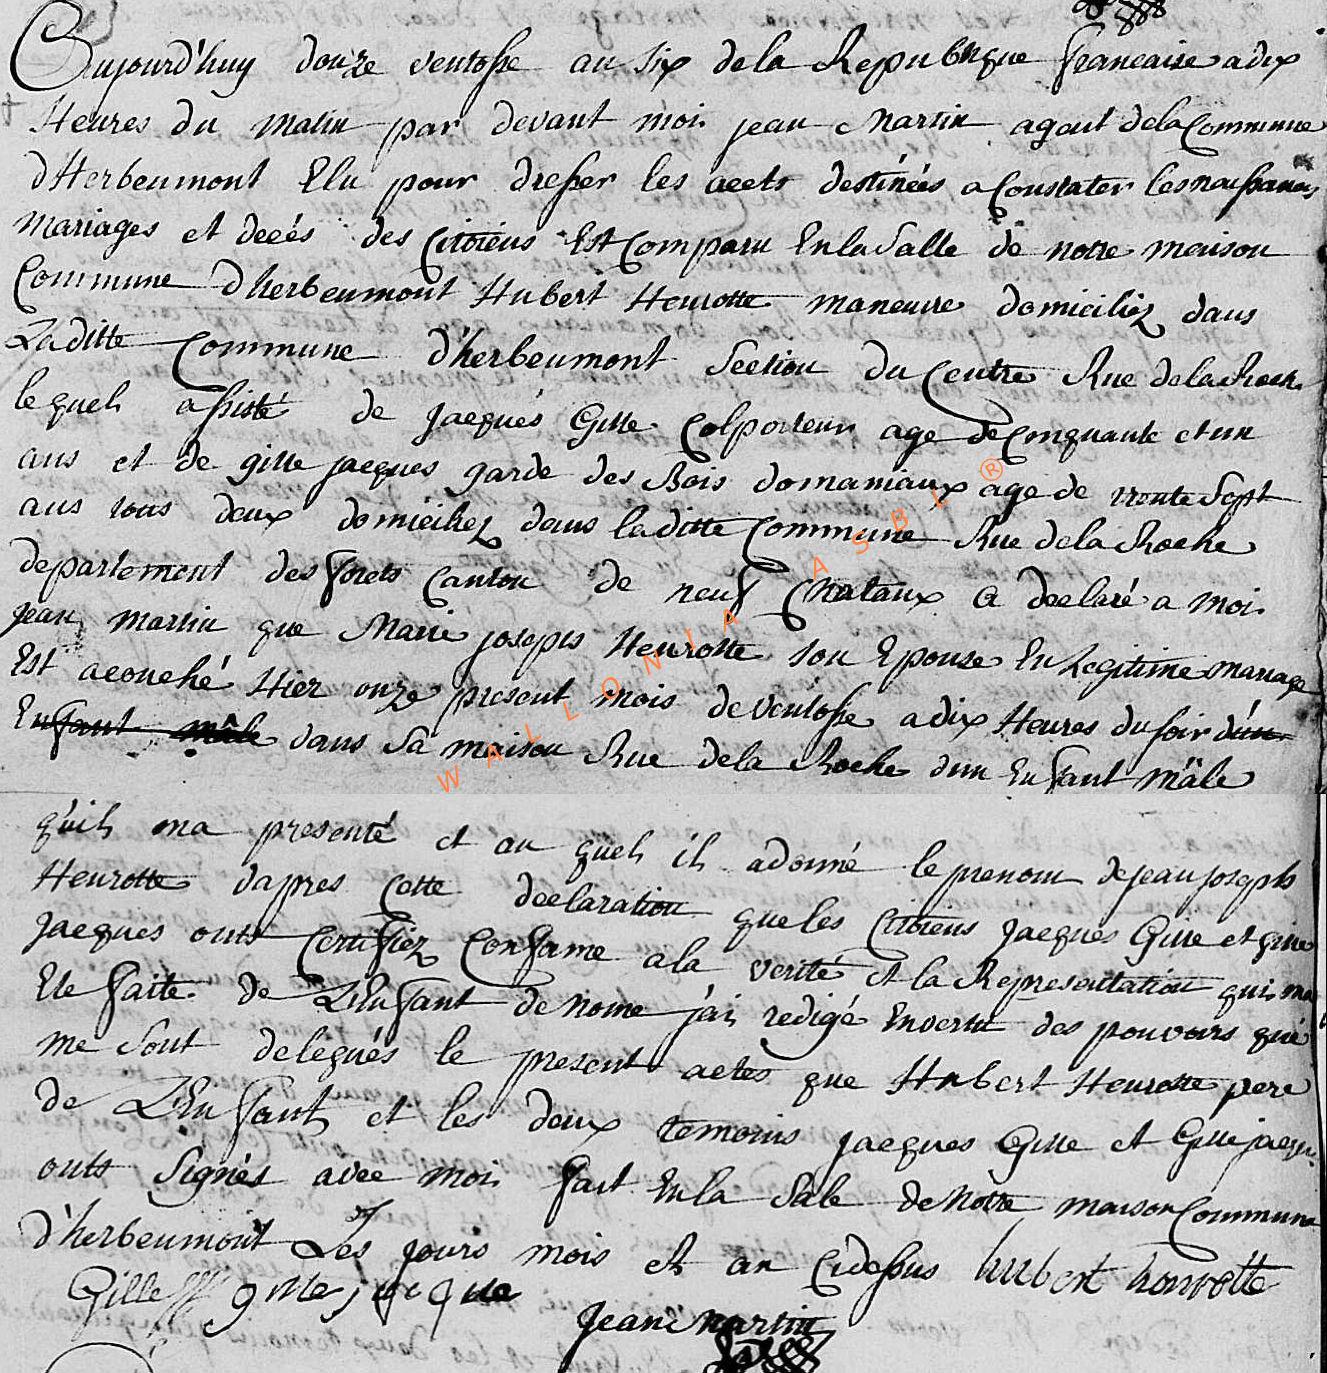 Aujourd'huy douze ventosse an six de la Republique francaise a dix
Heures du matin par devant moi jean Martin agent de la Commune
d'Herbeumont Elu pour dresser les acets destinées a Constater les naissances
mariages et decés des Citoiens Est Comparu En la Salle de notre maison
Commune d'herbeumont Hubert Henrotte maneuvre domiciliez dans
La ditte Commune d'herbeumont Section du Centre Rue de la Roche
le quel assisté de Jacques Gille Colporteur age de Conquante et un
ans et de gille jacques garde des Bois domaniaux age de trente Sept
ans tous deux domiciliez dans la ditte Commune Rue de la Roche
departement des forets Canton de neuf Chataux a declaré a moi
jean martin que Marie joseph Henrotte son Epouse En Legitime mariage
Est acouché Hier onze present mois de ventosse a dix Heures du soir d'un
Enfant mâle dans Sa maison Rue de la Roche dun Enfant mâle
qu'il ma presenté et au quel il a donné le prenom de jean joseph
Henrotte dapres Cette declaration que les Citoiens Jacques Gille et gille
jacques onts Certifiez Conforme a la verité et la Representation qui ma
Ete faite de L'Enfant de nome j'ai redigé En vertu des pouvoirs qué
me sont delegués le present actes que Hubert Henrotte pere
de L'Enfant et les deux temoins jacques Gille et Gille jacques
onts Signés avec moi fait En la Sale de Notre maison Commune
d'herbeumont Les jours mois et an Cidessus hubert honrotte
Gille gille jacque
Jean Martin
WALLONIA ASBL ®